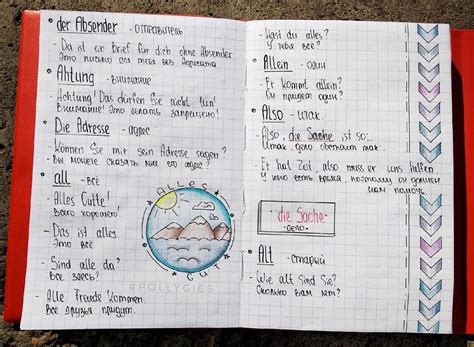 der Absender - отправитель
- Da ist ein Brief für dich ohne Absender
Это письмо для тебя без
Ahtung - внимание
- Achtung! Das dürfen Sie nicht tun!
Внимание! Это делать запрещено!
Die Adresse - адрес
- Können Sie mir sein Adresse sagen?
- Вы можете сказать мне его адрес?
all - всё
- Alles Gutte!
Всего хорошего!
- Das ist alles.
Это всё
- Sind alle da?
Все здесь?
- Alle Freude kommen.
Все друзья придут.
Alles Gut
#POLLYGIES
- Hast du alles?
У тебя всё?
Allein - один
- Er kommt allein?
Он придёт один?
Also - итак
- Also, die Sache ist so:
Итак, дело обстоит так.
- Er hat Zeit, also muss er uns helfen
У него есть время, поэтому он должен
нам помочь
die Sache
- дело -
Alt - старый
- Wie alt Sind Sie?
Сколько вам лет?